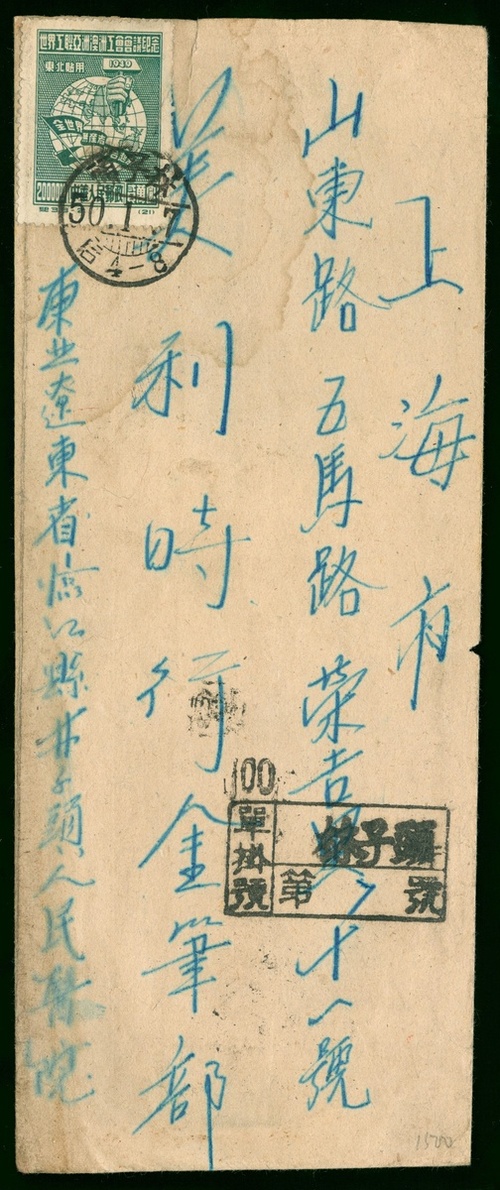 上海市
山東路五馬路榮吉里
號
美利時行金筆部
東北遼東省臨江縣林子頭人民醫院
世界工聯亞洲澳洲工會會議紀念
東北貼用
1949
全世界
20000
中華人民郵政
(21)
50 1 7
4-8
00
單掛號
林子頭
第 號
1500